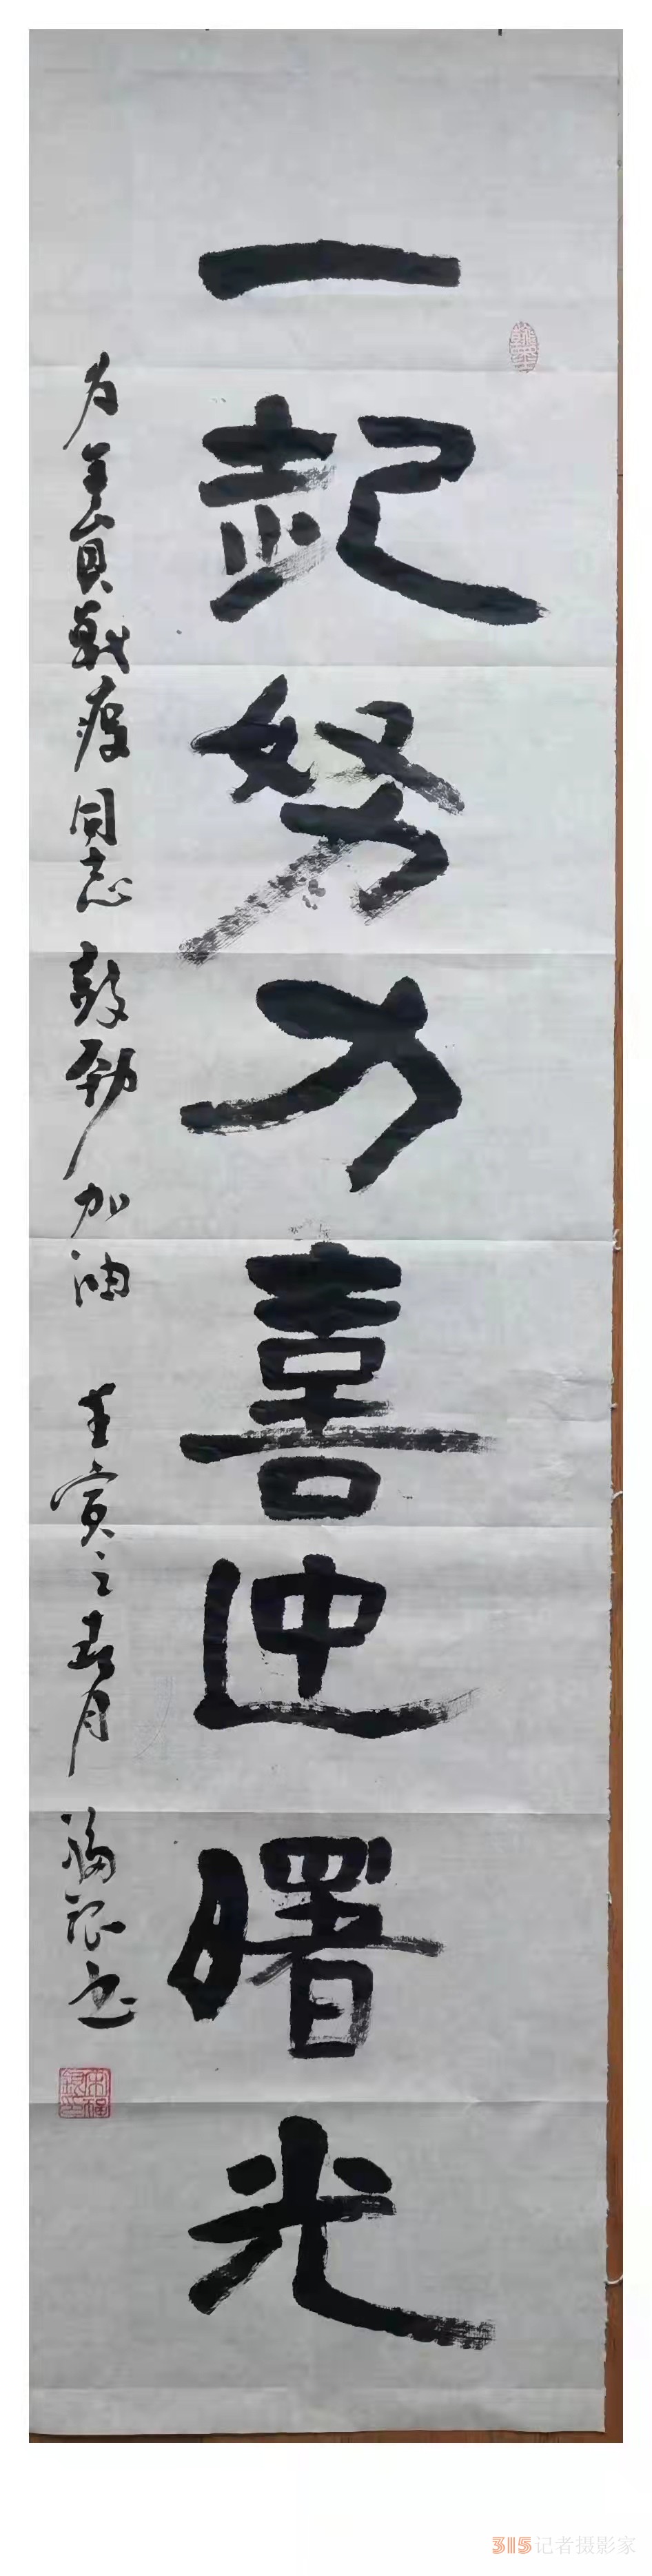 一起努力喜迎曙光
为全员战疫同志鼓劲加油 壬寅之春月 福银书
315记者摄影家